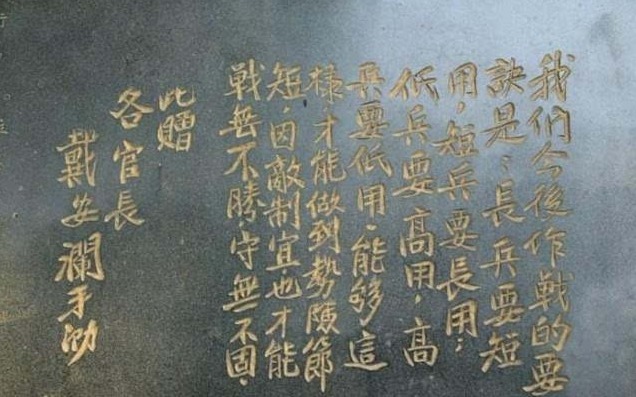 我们今後作戰的要
訣是：長兵要短
用，短兵要長用；
低兵要高用，高
兵要低用，能够這
樣才能做到勢險節
短，因敵制宜也才能
戰無不勝，守無不固。
此贈
各官長
戴安瀾手泐